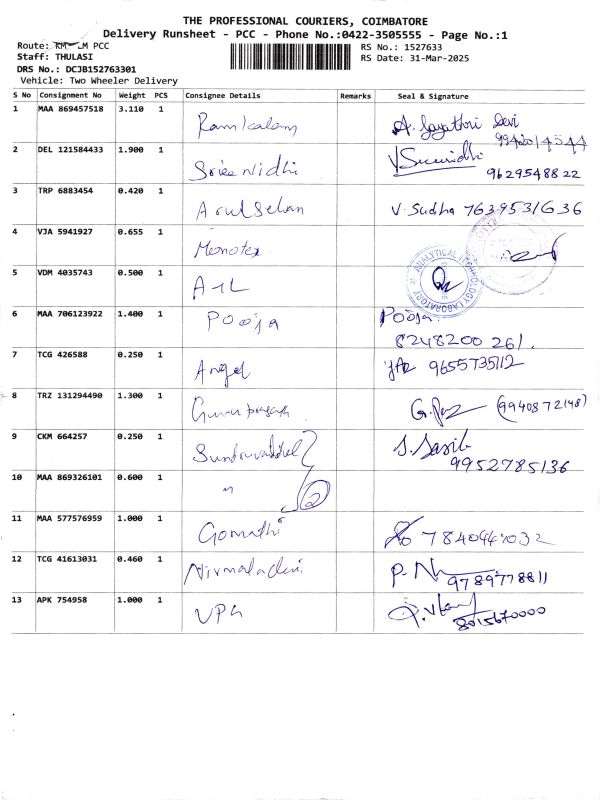 THE PROFESSIONAL COURIERS, COIMBATORE
Delivery Runsheet - PCC - Phone No.:0422-3505555 - Page No.:1
Route: PCC
RS No.: 1527633
Staff: THULASI
RS Date: 31-Mar-2025
DRS No.: DCJB152763301
Vehicle: Two Wheeler Delivery
S No Consignment No Weight PCS Consignee Details Remarks Seal & Signature
1 MAA 869457518 3.110 1 A. Gayathri Devi
2 DEL 121584433 1.900 1 Sree Nidhi
9629548822
3 TRP 6883454 0.420 1 Arulselvan V. Sudha 7639531636
4 VJA 5941927 0.655 1
5 VDM 4035743 0.500 1 ANALYTICAL TECHNOLOGY LABORATORY
6 MAA 706123922 1.400 1 Pooja Pooja
8248200 261.
7 TCG 426588 0.250 1 Angel 9655735112
8 TRZ 131294490 1.300 1 (9940872148)
9 CKM 664257 0.250 1
9952785136
10 MAA 869326101 0.600 1 "
11 MAA 577576959 1.000 1 Gomathi
12 TCG 41613031 0.460 1 Nirmaladevi
9789778811
13 APK 754958 1.000 1
8015670000